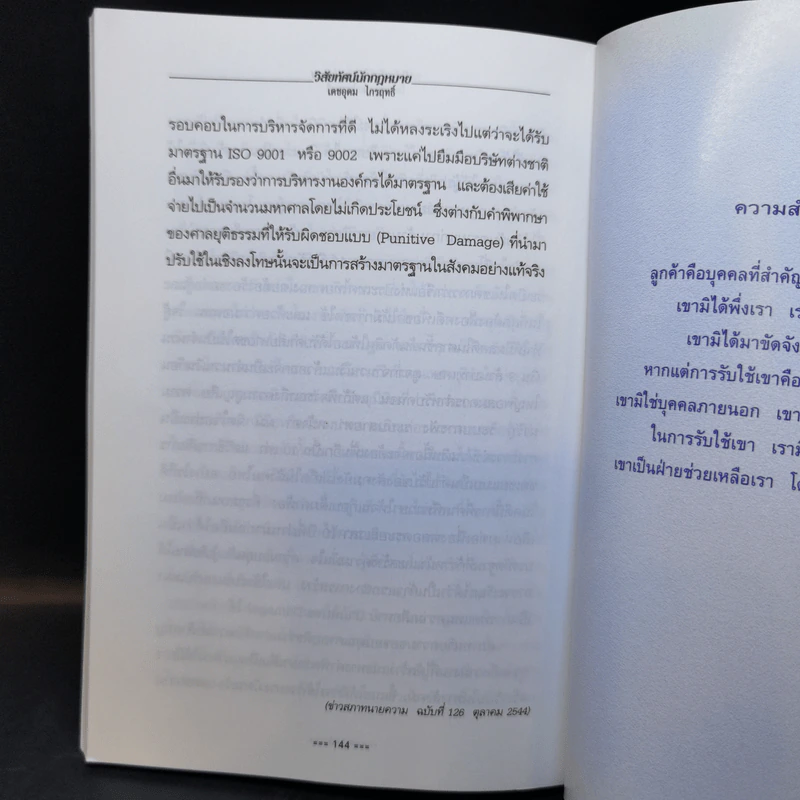 วิสัยทัศน์นักกฎหมาย
เดชอุดม ไกรฤทธิ์
รอบคอบในการบริหารจัดการที่ดี ไม่ได้หลงระเริงไปแต่ว่าจะได้รับ
มาตรฐาน ISO 9001 หรือ 9002 เพราะแค่ไปยืมมือบริษัทต่างชาติ
อื่นมาให้รับรองว่าการบริหารงานองค์กรได้มาตรฐาน และต้องเสียค่าใช้
จ่ายไปเป็นจำนวนมหาศาลโดยไม่เกิดประโยชน์ ซึ่งต่างกับคำพิพากษา
ของศาลยุติธรรมที่ให้รับผิดชอบแบบ (Punitive Damage) ที่นำมา
ปรับใช้ในเชิงลงโทษนั้นจะเป็นการสร้างมาตรฐานในสังคมอย่างแท้จริง
(ข่าวสภาทนายความ ฉบับที่ 126 ตุลาคม 2544)
»»» 144 «««
ลูกค้าคือบุคคลที่สำคัญ
เขามิได้พึ่งเรา
เขามิได้มาขัดจัง
หากแต่การรับใช้เขาคือ
เขามิใช่บุคคลภายนอก เขา
ในการรับใช้เขา เรามิ
เขาเป็นฝ่ายช่วยเหลือเรา